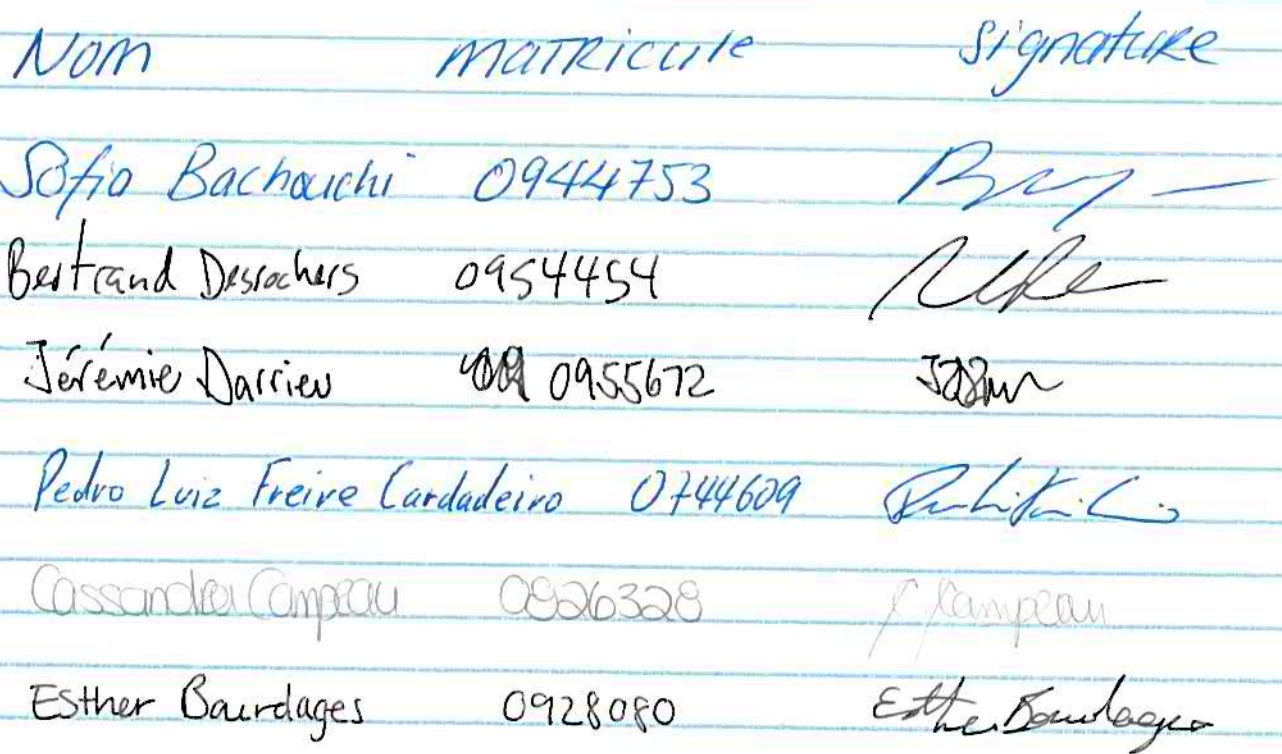 Nom matricule signature
Sofia Bachouchi 0944753
Bertrand Desrochers 0954454
Jérémie Darrieu 0955672
Pedro Luiz Freire Cardadeiro 0744609
Cassandra Campeau 0826328 C Campeau
Esther Bourdages 0928080 Esther Bourdages